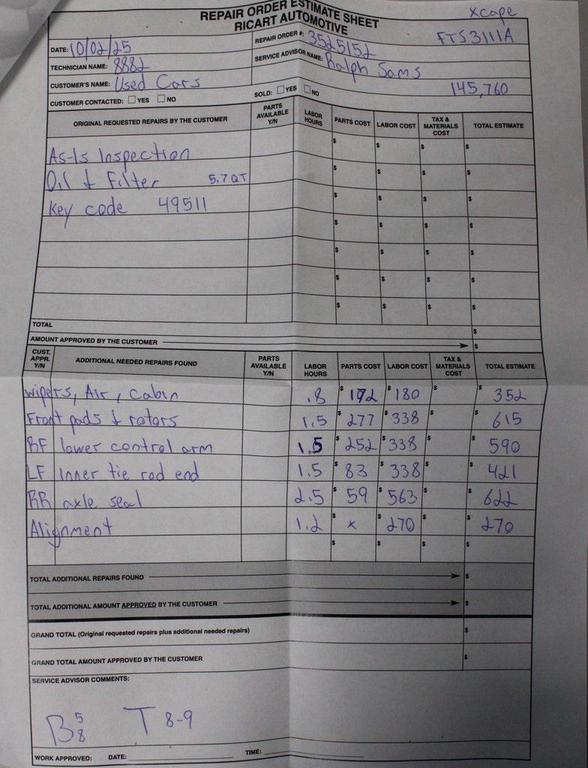 REPAIR ORDER ESTIMATE SHEET
RICART AUTOMOTIVE
Xcape
DATE: 10/02/25
REPAIR ORDER #: 3525152
FTS3111A
TECHNICIAN NAME: 8882
SERVICE ADVISOR NAME: Ralph Sams
CUSTOMER'S NAME: Used Cars
145,760
CUSTOMER CONTACTED: ☐ YES ☐ NO
SOLD: ☐ YES ☐ NO
ORIGINAL REQUESTED REPAIRS BY THE CUSTOMER PARTS AVAILABLE Y/N LABOR HOURS PARTS COST LABOR COST TAX & MATERIALS COST TOTAL ESTIMATE
As-Is Inspection $ $ $ $
Oil & Filter 5.7 QT $ $ $ $
Key code 49511 $ $ $ $
$ $ $ $
$ $ $ $
$ $ $ $
$ $ $ $
TOTAL $
AMOUNT APPROVED BY THE CUSTOMER $
CUST. APPR. Y/N ADDITIONAL NEEDED REPAIRS FOUND PARTS AVAILABLE Y/N LABOR HOURS PARTS COST LABOR COST TAX & MATERIALS COST TOTAL ESTIMATE
Wipers, Air, Cabin .8 $ 172 $ 180 $ $ 352
Front pads & rotors 1.5 $ 277 $ 338 $ $ 615
RF lower control arm 1.5 $ 252 $ 338 $ $ 590
LF inner tie rod end 1.5 $ 83 $ 338 $ $ 421
RR axle seal 2.5 $ 59 $ 563 $ $ 622
Alignment 1.2 $ x $ 270 $ $ 270
$ $ $ $
TOTAL ADDITIONAL REPAIRS FOUND $
TOTAL ADDITIONAL AMOUNT APPROVED BY THE CUSTOMER $
GRAND TOTAL (Original requested repairs plus additional needed repairs) $
GRAND TOTAL AMOUNT APPROVED BY THE CUSTOMER $
SERVICE ADVISOR COMMENTS:
B 5 8 T 8-9
WORK APPROVED: DATE: TIME: